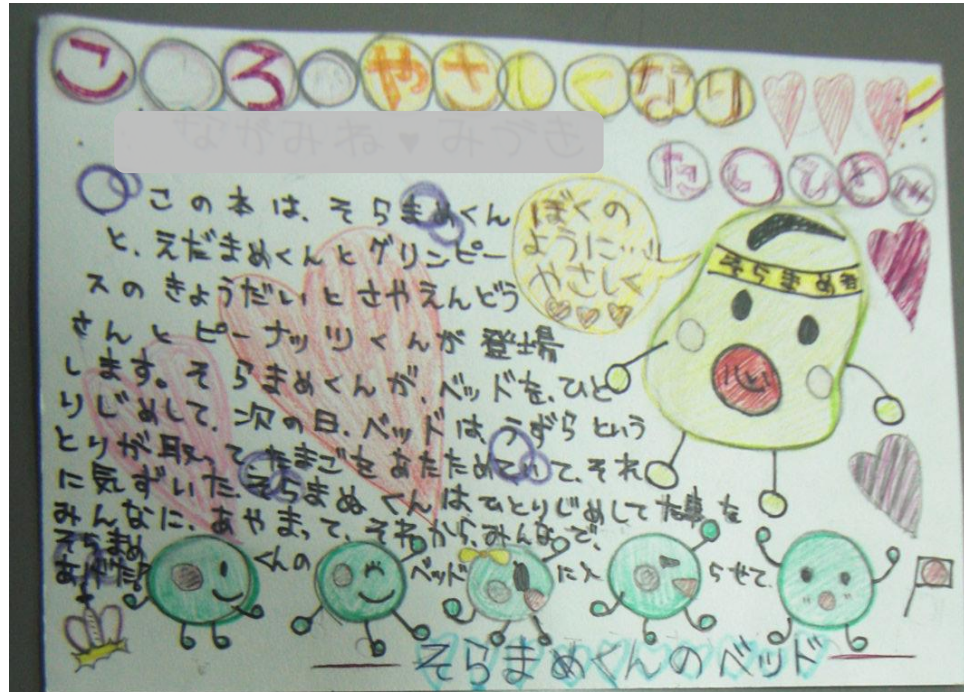 こころやさしくなり
たいひとに
ながみね♥みづき
この本は、そらまめくん
と、えだまめくんとグリンピー
スのきょうだいとさやえんどう
さんとピーナッツくんが登場
します。そらまめくんが、ベッドを、ひと
りじめして、次の日、ベッドは、うずらという
とりが取ってたまごをあたためていて、それ
に気ずいた、そらまめくんはひとりじめして た事を
みんなに、あやまって、それから、みんなで、
そらまめくんのベッドに入らせて
ぼくの
ように…
やさしく
そらまめ
心
そらまめくんのベッド